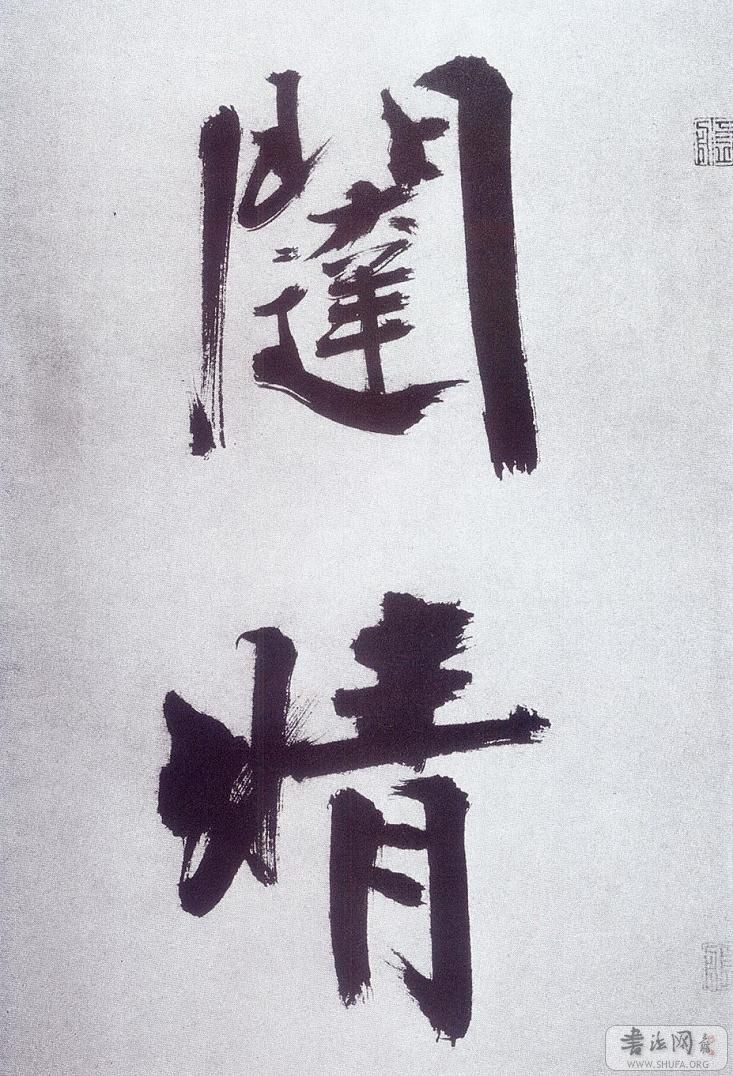 闥
情
書法网
WWW.SHUFA.ORG